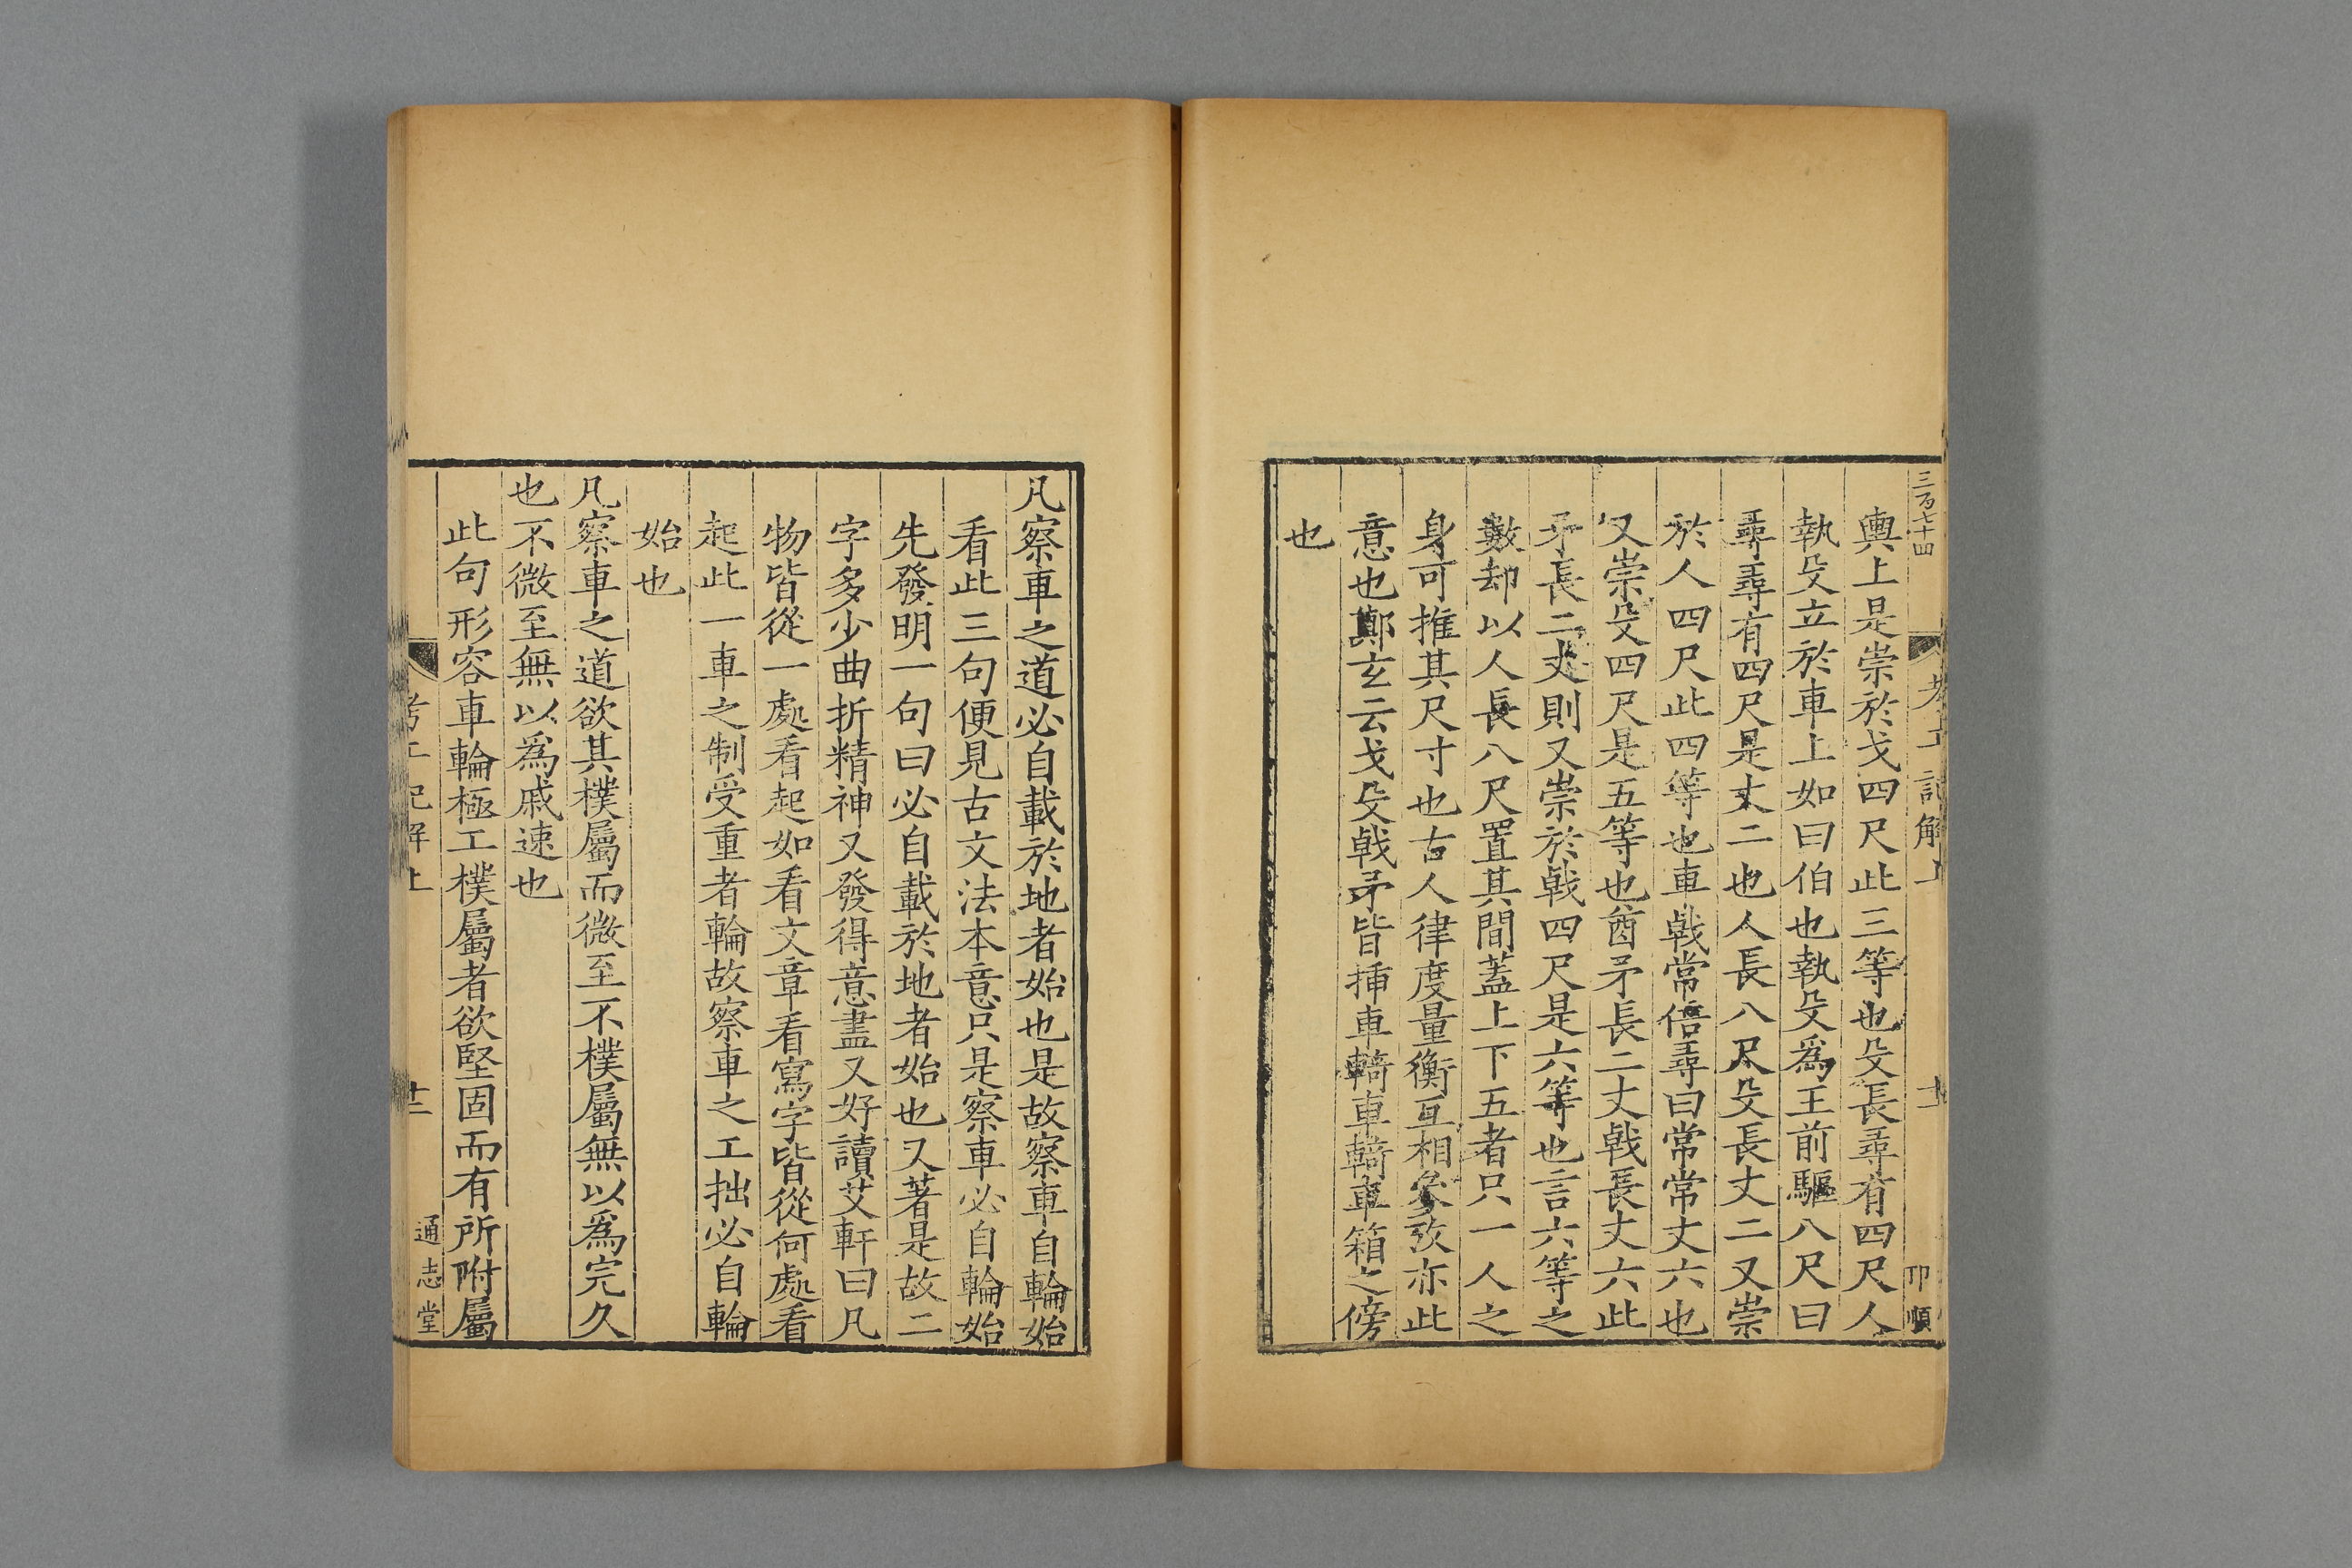 三百七十四
考工記解上
十一
卭順
輿上是崇於戈四尺此三等也殳長尋有四尺人
執殳立於車上如曰伯也執殳爲王前驅八尺曰
尋尋有四尺是丈二也人長八尺殳長丈二又崇
於人四尺此四等也車㦸常倍尋曰常常丈六也
又崇殳四尺是五等也酋矛長二丈㦸長丈六此
矛長二丈則又崇於㦸四尺是六等也言六等之
數却以人長八尺置其間蓋上下五者只一人之
身可推其尺寸也古人律度量衡互相參攷亦此
意也鄭玄云戈殳㦸矛皆揷車輢車輢車箱之傍
也
凡察車之道必自載於地者始也是故察車自輪始
看此三句便見古文法本意只是察車必自輪始
先發明一句曰必自載於地者始也又著是故二
字多少曲折精神又發得意盡又好讀艾軒曰凡
物皆從一處看起如看文章看寫字皆從何處看
起此一車之制受重者輪故察車之工拙必自輪
始也
凡察車之道欲其樸屬而微至不樸屬無以爲完久
也不微至無以爲戚速也
此句形容車輪極工樸屬者欲堅固而有所附屬
考工記解上
十二
通志堂